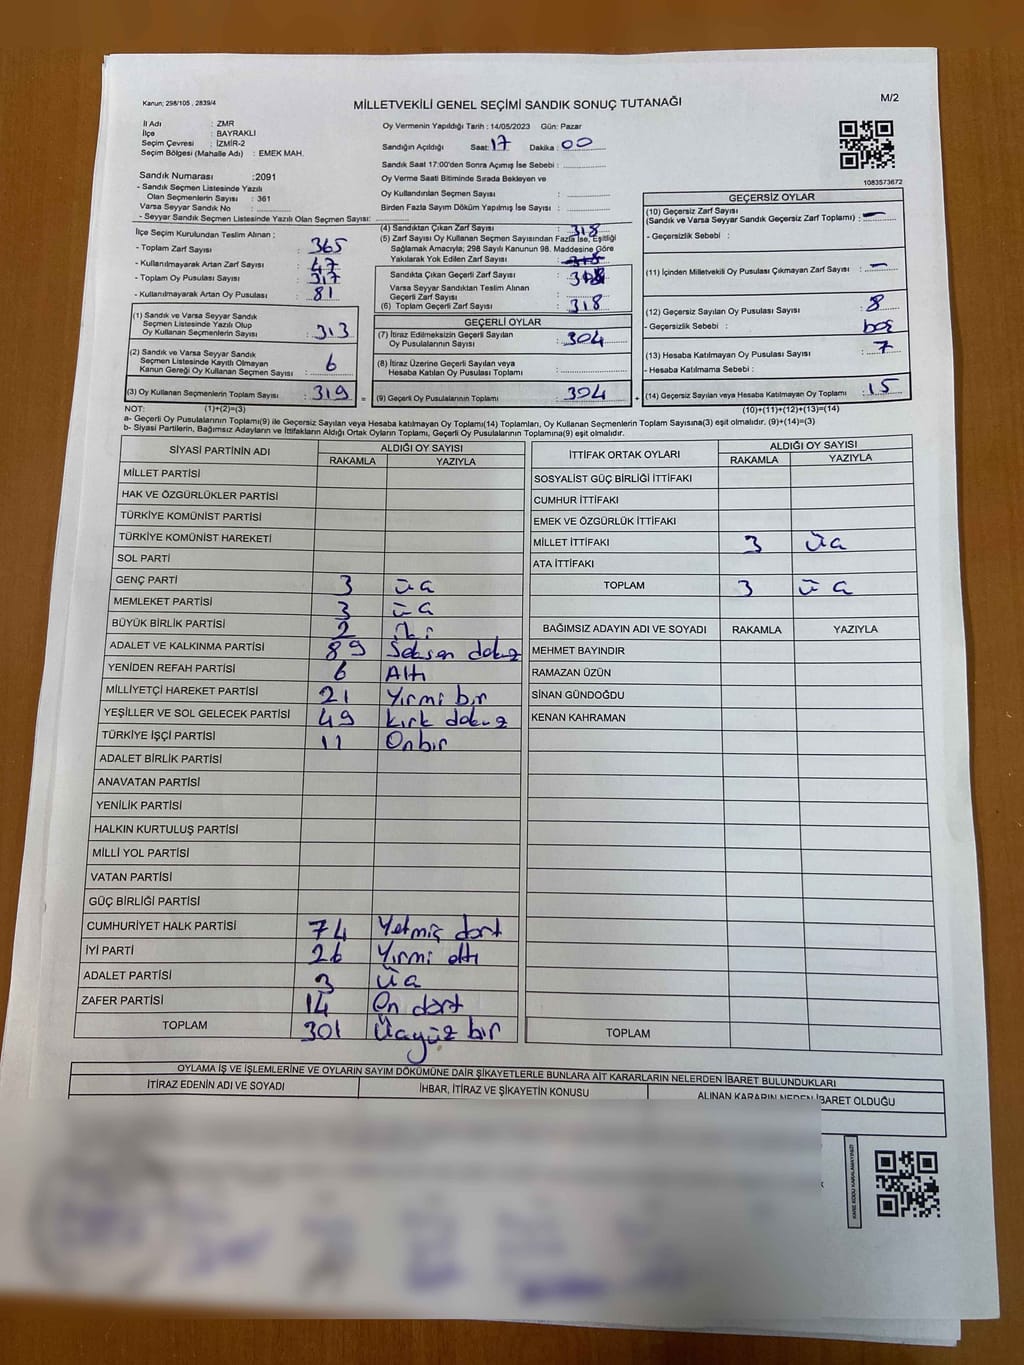 Kanun; 298/105 , 2839/4
MİLLETVEKİLİ GENEL SEÇİMİ SANDIK SONUÇ TUTANAĞI
M/2
İl Adı : ZMR
İlçe : BAYRAKLI
Seçim Çevresi : İZMİR-2
Seçim Bölgesi (Mahalle Adı) : EMEK MAH.
Sandık Numarası :2091
- Sandık Seçmen Listesinde Yazılı
Olan Seçmenlerin Sayısı : 361
Varsa Seyyar Sandık No :
- Seyyar Sandık Seçmen Listesinde Yazılı Olan Seçmen Sayısı:
Oy Vermenin Yapıldığı Tarih : 14/05/2023 Gün: Pazar
Sandığın Açıldığı Saat: 17 Dakika : 00
Sandık Saat 17:00'den Sonra Açımış İse Sebebi :
Oy Verme Saati Bitiminde Sırada Bekleyen ve
Oy Kullandırılan Seçmen Sayısı :
Birden Fazla Sayım Döküm Yapılmış İse Sayısı :
1083573672
İlçe Seçim Kurulundan Teslim Alınan ;
- Toplam Zarf Sayısı : 365
- Kullanılmayarak Artan Zarf Sayısı : 47
- Toplam Oy Pusulası Sayısı : 317
- Kullanılmayarak Artan Oy Pusulası : 81
(1) Sandık ve Varsa Seyyar Sandık
Seçmen Listesinde Yazılı Olup
Oy Kullanan Seçmenlerin Sayısı : 313
(2) Sandık ve Varsa Seyyar Sandık
Seçmen Listesinde Kayıtlı Olmayan
Kanun Gereği Oy Kullanan Seçmen Sayısı : 6
(3) Oy Kullanan Seçmenlerin Toplam Sayısı : 319
(4) Sandıktan Çıkan Zarf Sayısı : 318
(5) Zarf Sayısı Oy Kullanan Seçmen Sayısından Fazla İse, Eşitliği
Sağlamak Amacıyla; 298 Sayılı Kanunun 98. Maddesine Göre
Yakılarak Yok Edilen Zarf Sayısı :
Sandıkta Çıkan Geçerli Zarf Sayısı : 318
Varsa Seyyar Sandıktan Teslim Alınan
Geçerli Zarf Sayısı :
(6) Toplam Geçerli Zarf Sayısı : 318
GEÇERLİ OYLAR
(7) İtiraz Edilmeksizin Geçerli Sayılan
Oy Pusulalarının Sayısı : 304
(8) İtiraz Üzerine Geçerli Sayılan veya
Hesaba Katılan Oy Pusulası Toplamı :
= (9) Geçerli Oy Pusulalarının Toplamı : 304
GEÇERSİZ OYLAR
(10) Geçersiz Zarf Sayısı
(Sandık ve Varsa Seyyar Sandık Geçersiz Zarf Toplamı) : —
- Geçersizlik Sebebi :
(11) İçinden Milletvekili Oy Pusulası Çıkmayan Zarf Sayısı : —
(12) Geçersiz Sayılan Oy Pusulası Sayısı : 8
- Geçersizlik Sebebi : boş
(13) Hesaba Katılmayan Oy Pusulası Sayısı : 7
- Hesaba Katılmama Sebebi :
+ (14) Geçersiz Sayılan veya Hesaba Katılmayan Oy Toplamı : 15
NOT: (1)+(2)=(3) (10)+(11)+(12)+(13)=(14)
a- Geçerli Oy Pusulalarının Toplamı(9) ile Geçersiz Sayılan veya Hesaba katılmayan Oy Toplamı(14) Toplamları, Oy Kullanan Seçmenlerin Toplam Sayısına(3) eşit olmalıdır. (9)+(14)=(3)
b- Siyasi Partilerin, Bağımsız Adayların ve İttifakların Aldığı Ortak Oyların Toplamı, Geçerli Oy Pusulalarının Toplamına(9) eşit olmalıdır.
SİYASİ PARTİNİN ADI ALDIĞI OY SAYISI
RAKAMLA YAZIYLA
MİLLET PARTİSİ
HAK VE ÖZGÜRLÜKLER PARTİSİ
TÜRKİYE KOMÜNİST PARTİSİ
TÜRKİYE KOMÜNİST HAREKETİ
SOL PARTİ
GENÇ PARTİ 3 üç
MEMLEKET PARTİSİ 3 üç
BÜYÜK BİRLİK PARTİSİ 2 iki
ADALET VE KALKINMA PARTİSİ 89 Seksen dokuz
YENİDEN REFAH PARTİSİ 6 Altı
MİLLİYETÇİ HAREKET PARTİSİ 21 Yirmi bir
YEŞİLLER VE SOL GELECEK PARTİSİ 49 kırk dokuz
TÜRKİYE İŞÇİ PARTİSİ 11 Onbir
ADALET BİRLİK PARTİSİ
ANAVATAN PARTİSİ
YENİLİK PARTİSİ
HALKIN KURTULUŞ PARTİSİ
MİLLİ YOL PARTİSİ
VATAN PARTİSİ
GÜÇ BİRLİĞİ PARTİSİ
CUMHURİYET HALK PARTİSİ 74 Yetmiş dört
İYİ PARTİ 26 Yirmi altı
ADALET PARTİSİ 3 üç
ZAFER PARTİSİ 14 On dört
TOPLAM 301 üçyüz bir
İTTİFAK ORTAK OYLARI ALDIĞI OY SAYISI
RAKAMLA YAZIYLA
SOSYALİST GÜÇ BİRLİĞİ İTTİFAKI
CUMHUR İTTİFAKI
EMEK VE ÖZGÜRLÜK İTTİFAKI
MİLLET İTTİFAKI 3 üç
ATA İTTİFAKI
TOPLAM 3 üç
BAĞIMSIZ ADAYIN ADI VE SOYADI RAKAMLA YAZIYLA
MEHMET BAYINDIR
RAMAZAN ÜZÜN
SİNAN GÜNDOĞDU
KENAN KAHRAMAN
TOPLAM
OYLAMA İŞ VE İŞLEMLERİNE VE OYLARIN SAYIM DÖKÜMÜNE DAİR ŞİKAYETLERLE BUNLARA AİT KARARLARIN NELERDEN İBARET BULUNDUKLARI
İTİRAZ EDENİN ADI VE SOYADI İHBAR, İTİRAZ VE ŞİKAYETİN KONUSU ALINAN KARARIN NEDEN İBARET OLDUĞU